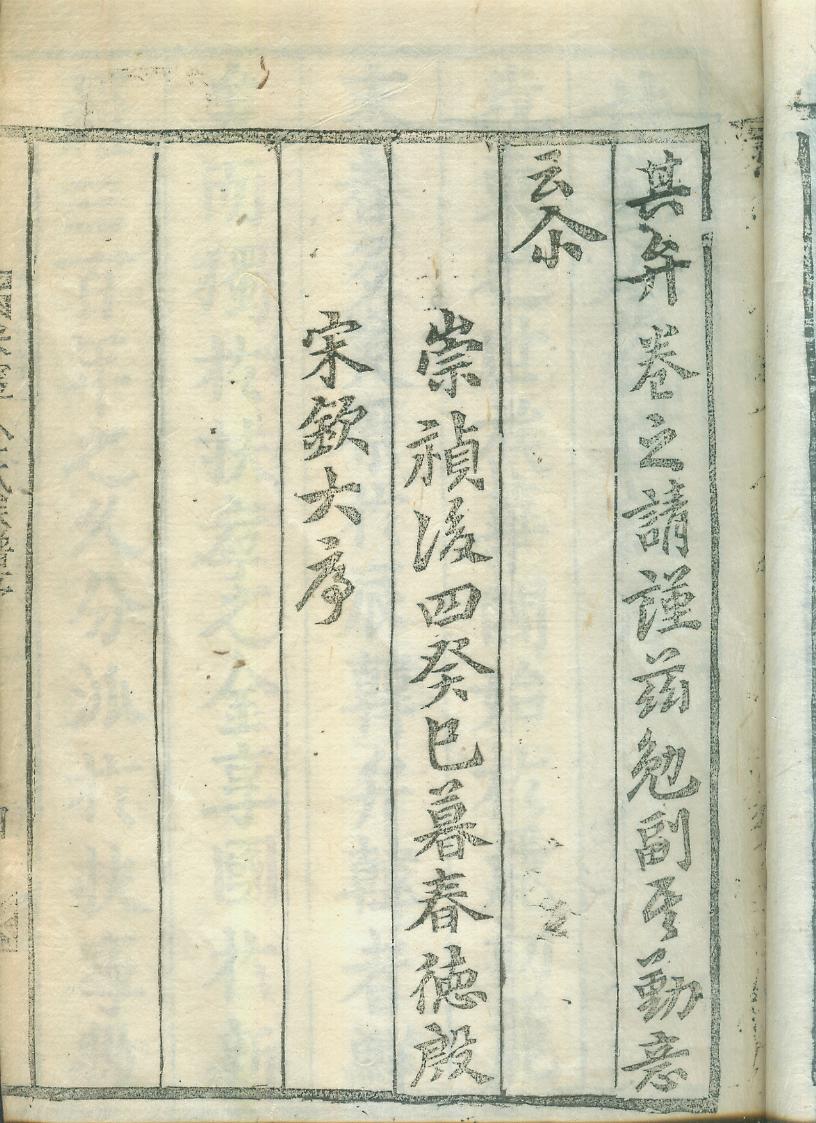 其弁卷之請謹玆勉副至勤意
云尒
崇禎後四癸巳暮春德殷
宋欽大序